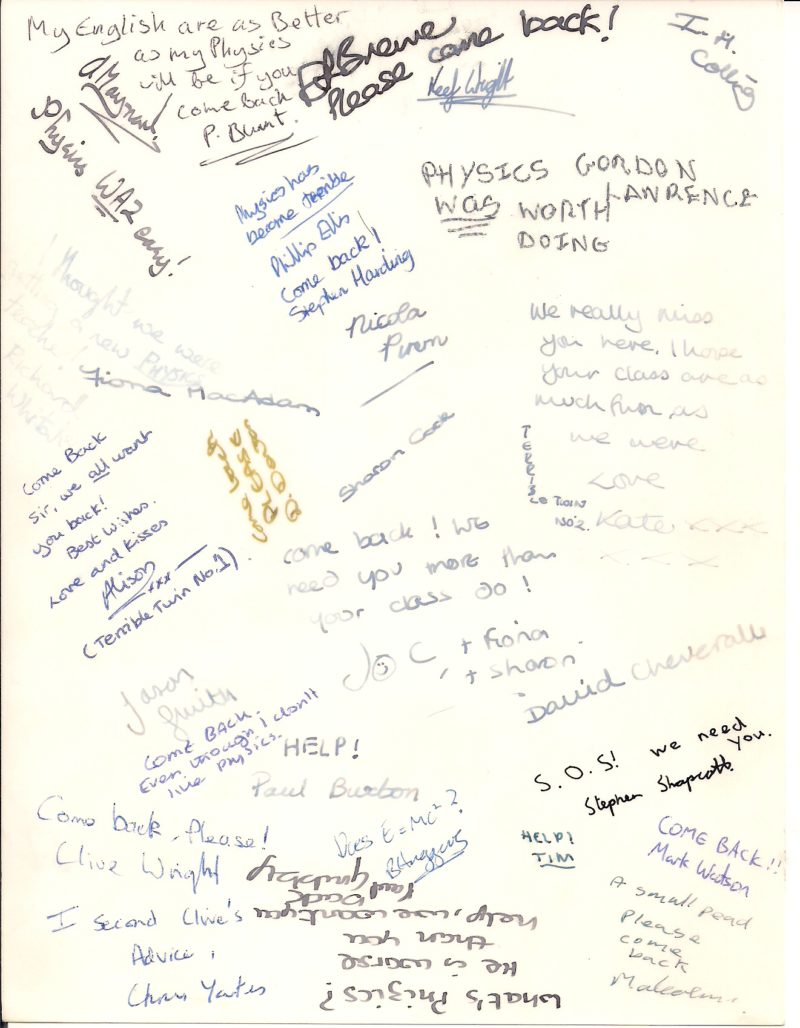 My English are as Better
as my Physics
will be if you
come Back
P. Blunt.
Please come back!
Keef Wright
I. H.
Colling
Physics WAZ easy!
Physics has
become terrible
Phillip Ellis
Come back!
Stephen Harding
PHYSICS
WAS WORTH
DOING
GORDON
LAWRENCE
I thought we were
getting a new PHYSICS
teacher!
Richard
Nicola
Fiona MacAdam
We really miss
you here, I hope
your class are as
much fun as
we were
Love
Kate xxx
xxx
TERRIBLE TWIN
NO2.
Come Back
Sir, we all want
you back!
Best Wishes.
Love and Kisses
Alison
xxx
(Terrible Twin No.1)
Come back
PLEASE
Sharon Cook
come back! We
need you more than
your class do!
Jo C, + Fiona
+ Sharon.
David Cheverall
Jason
Smith
COME BACK.
Even though I don't
like PHYSICS.
HELP!
Paul Burton
S.O.S! we need
you.
Stephen Shapcott.
Come back, Please!
Clive Wright
Does E=MC²?
HELP!
TIM
COME BACK!!
Mark Watson
I second Clive's
Advice,
Chris Yates
What's Phizics?
He is worse
then you
help, we want you
back
quickly
Paul
A small pead
Please
come
back
Malcolm.